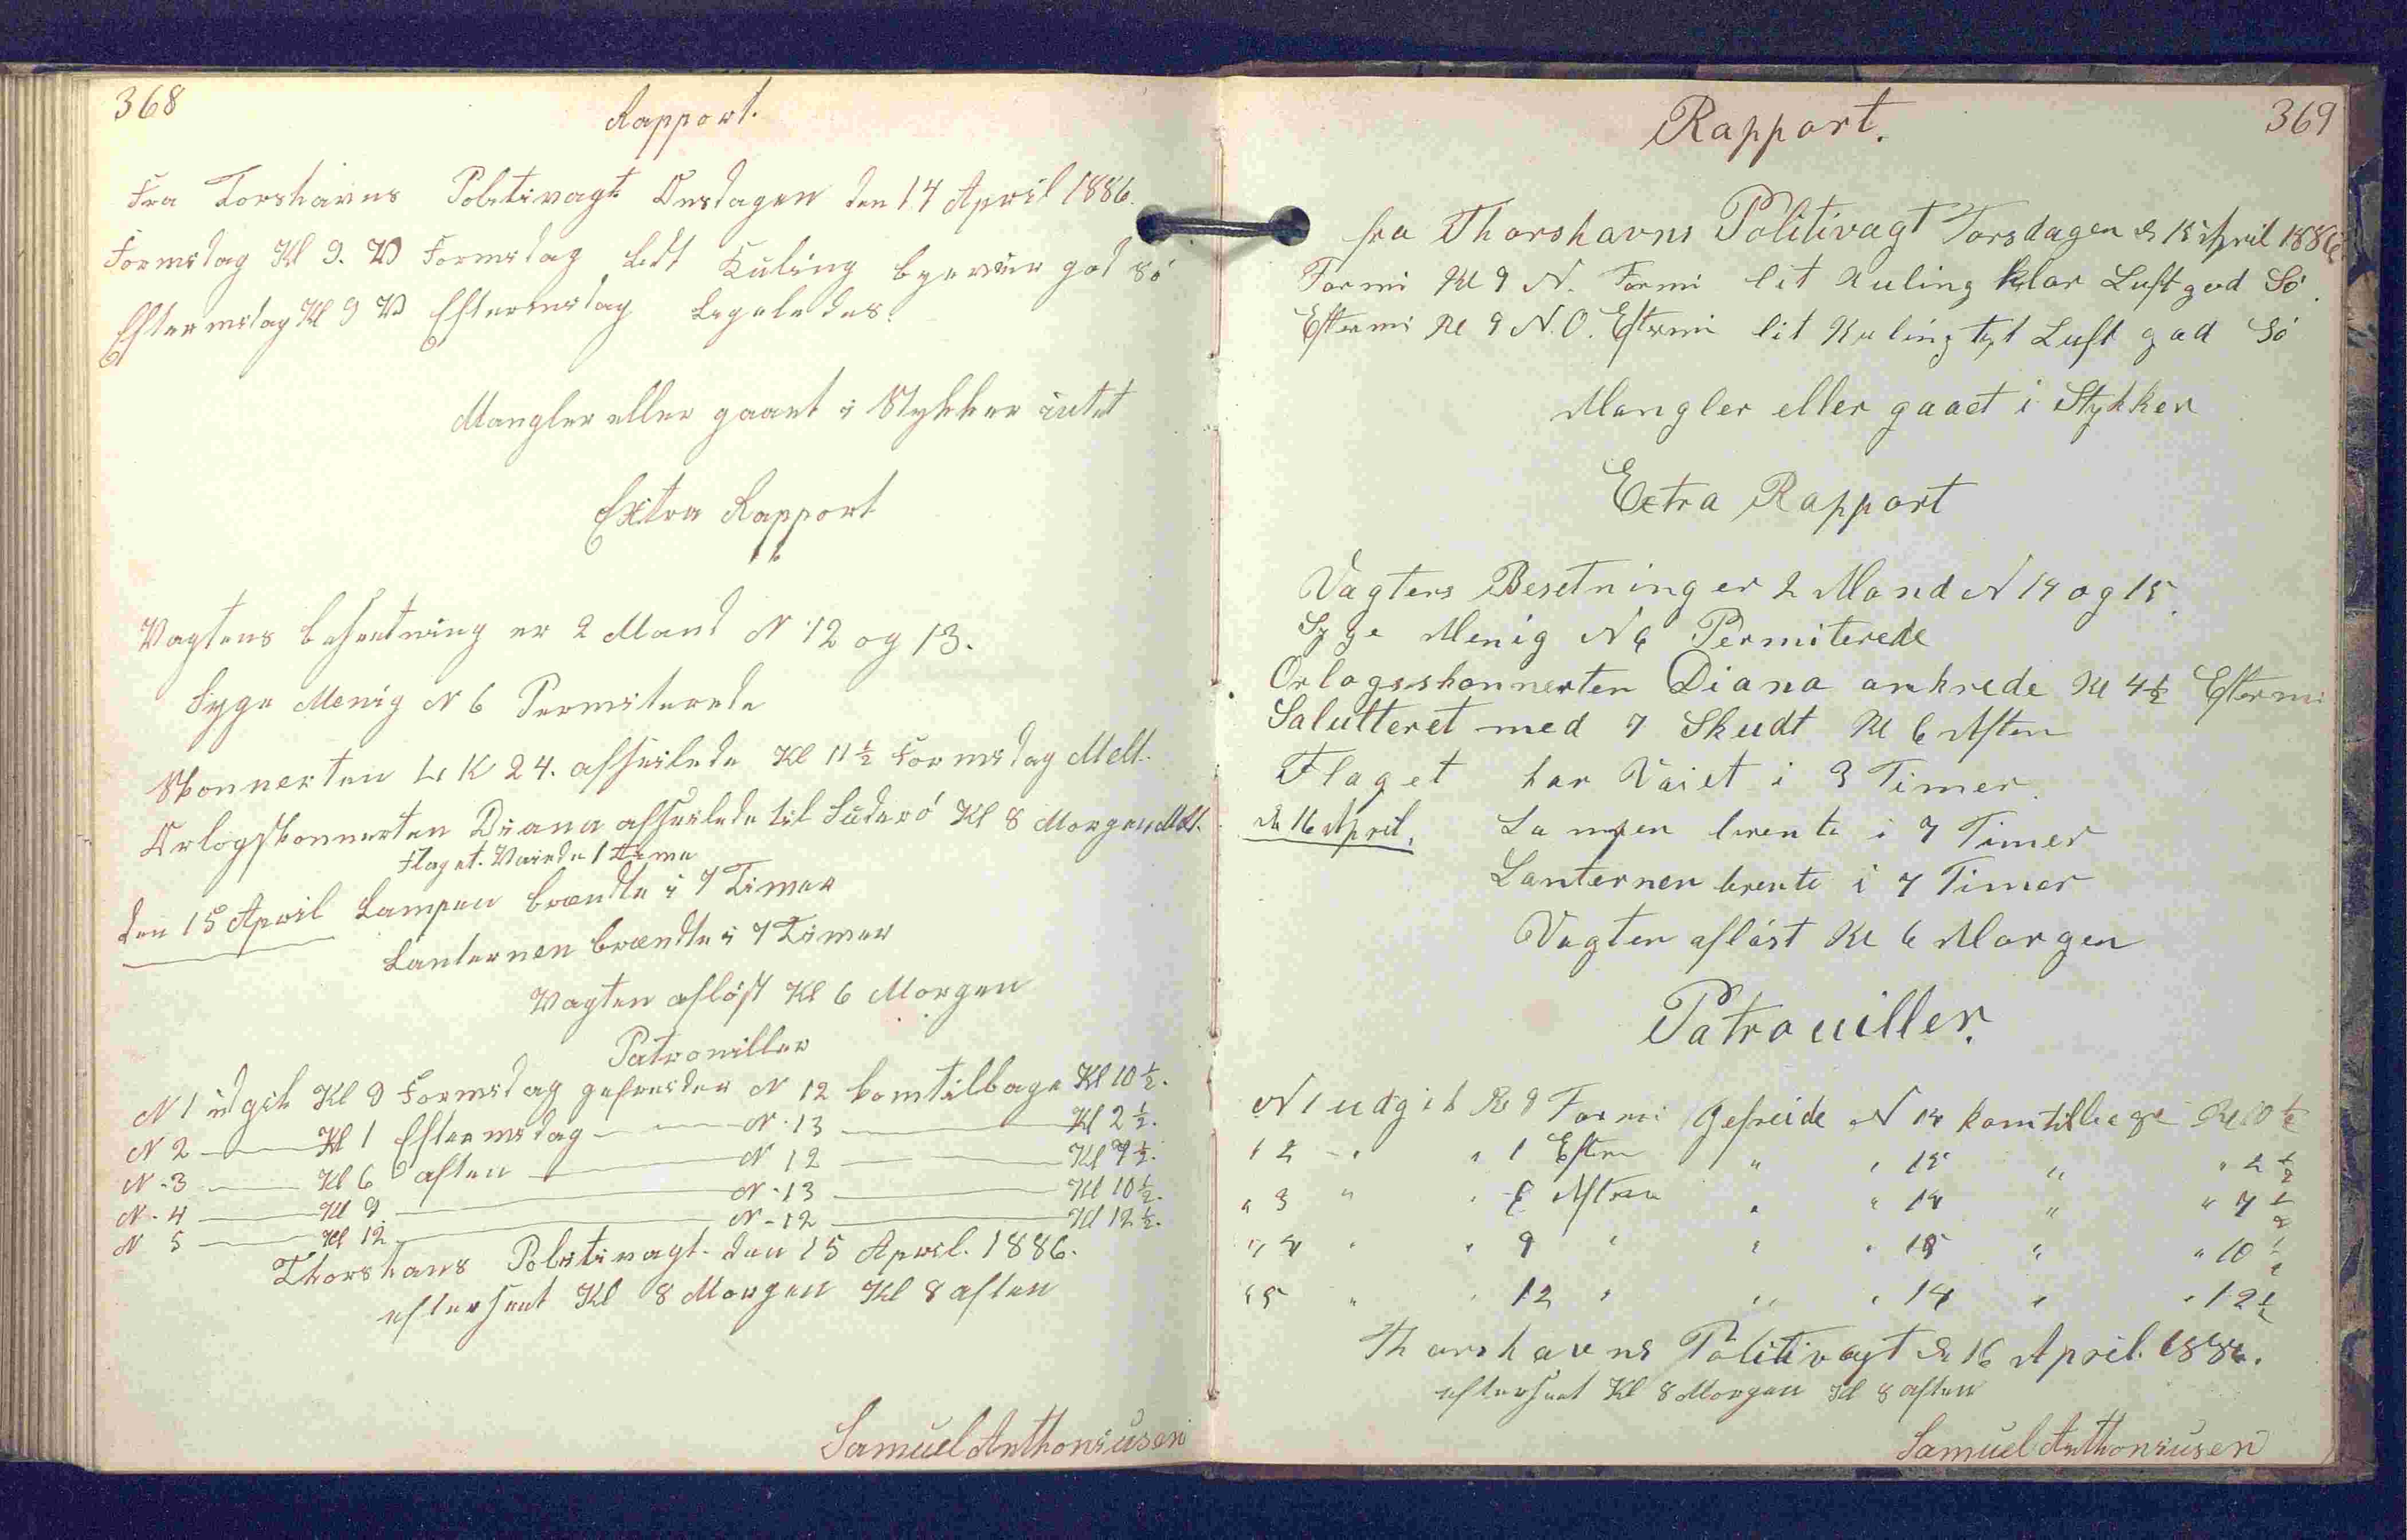 368
Rapport.
Fra Torshavns Politivagt Onsdagen den 14 April 1886.
Formidag Kl 9. V Formidag Ledt Kuling bgevür god Sö
Eftermidag Kl 9 V Eftermidag Legeledes.
Mangler eller gaaet i Stykker intet
Extra Rapport
Vagtens besætning er 2 Mand N 12 og 13.
Syge Menig N 6 Permiterede
Skonnerten L K 24. afseilede Kl 11 ½ Formidag Meld.
Orlogskonnerten Diana afseilede til Süderö Kl 8 Morgen Mld.
Flaget. Vaiede 1 Time
den 15 April Lampen brændte i 7 Timer
Lanternen brændte i 7 Timer
Vagten aflöst Kl 6 Morgen
Patrouiller
N 1 udgik Kl 9 Formidag gefreider N 12 komtilbage Kl 10 ½.
N 2 Kl 1 Eftermidag N. 13 Kl 2 ½.
N. 3 Kl 6 aften N 12 Kl 7 ½.
N. 4 Kl 9 N. 13 Kl 10 ½.
N 5 Kl 12 N. 12 Kl 12 ½.
Thorshans Politivagt. den 15 April. 1886.
efterseet Kl 8 Morgen Kl 8 aften
Samuel Anthoniusen
369
Rapport.
fra Thorshavns Politivagt Torsdagen d 15 April 1886
Formi Kl 9 N. Formi lit Kuling klar Luft god Sö.
Eftermi Kl 9 N.O. Eftermi lit Kuling tyt Luft god Sö
Mangler eller gaaet i Stykker
Extra Rapport
Vagtens Besetning er 2 Mand N 14 og 15.
Syge Menig N 6 Permiterede
Orlogsskonnerten Diana ankrede Kl 4½ Eftermi
Salutteret med 7 Skudt Kl 6 Aften
Flaget har Vaiet i 3 Timer.
d 16 April. Lampen brente i 7 Timer
Lanternen brente i 7 Timer
Vagten aflöst Kl 6 Morgen
Patrouiller.
N 1 udgik Kl 9 Formi Gefreide N 14 komtilbage Kl 10 ½
" 2 " " 1 Efterm " " 15 " " 2 ½
" 3 " " 6 Aften " " 14 " " 7 ½
" 4 " " 9 " " " 15 " " 10 ½
" 5 " " 12 " " " 14 " " 12 ½
Thorshavns Politivagt d 16 April. 1886.
efterseet Kl 8 Morgen Kl 8 aften
Samuel Anthoniusen